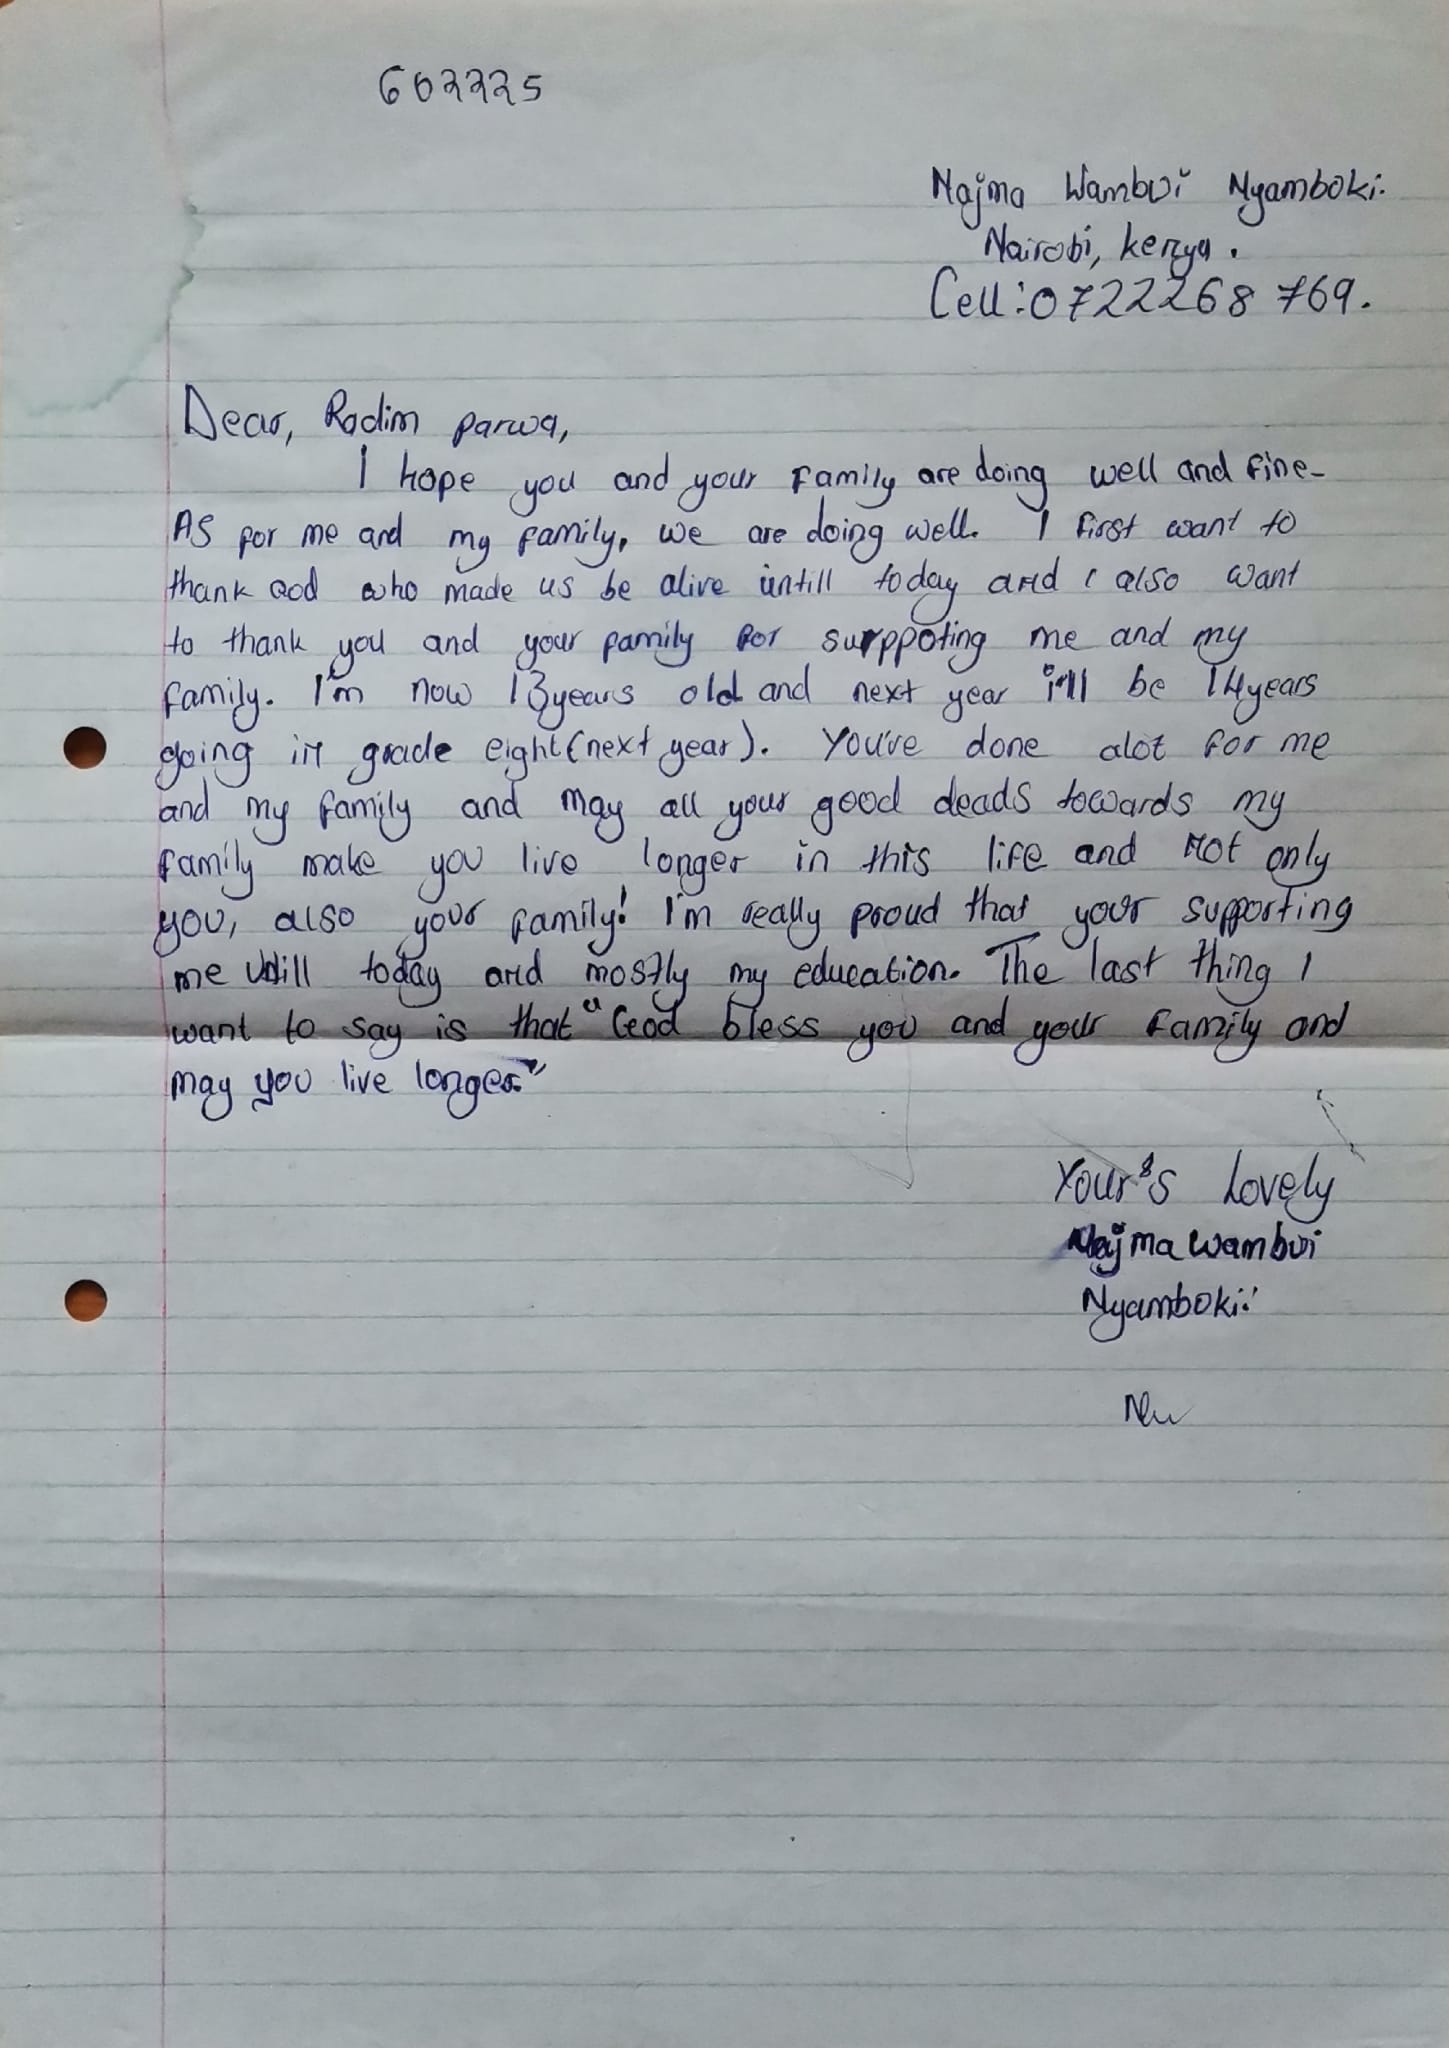 602225
Najma Wambui Nyamboki.
Nairobi, kenya.
Cell: 0722268 769.
Dear, Radim parwa,
I hope you and your family are doing well and fine-
As for me and my family, we are doing well. I first want to
thank God who made us be alive untill today and i also want
to thank you and your family for surppoting me and my
family. I'm now 13years old and next year i'll be 14years
going in grade eight(next year). You've done alot for me
and my family and may all your good deads towards my
family make you live longer in this life and not only
you, also your family! I'm really proud that your supporting
me till today and mostly my education. The last thing I
want to say is that "God bless you and your family and
may you live longer."
Your's Lovely
Najma Wambui
Nyamboki!